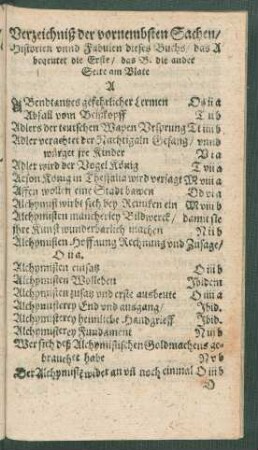 Verzeichniß der vornembsten Sachen/
Historien vnnd Fabulen dieses Buchs/ das A
bedeutet die Erste/ das B. die ander
Seite am Blate
A
ABendtantzes gefehrlicher Lermen
Abfall vom Bezkopff T ii b
Adlers der teutschen Wapen Vrsprung
Adler verachtet der Nachtigaln Gesang/ vnnd
würget jre Kinder V i a
Adler wird der Vogel König
König in Thessalia wird versagt
Affen wollen eine Stadt bawen
Alchymist wirbt sich bey Reiniken ein
Alchymisten mancherley Bildwerck/ damit sie
jhre Kunst wunderbarlich machen N ii b
Alchymisten Hoffnung Rechnung vnd Zusage/
O ii a.
Alchymisten einsatz O iii b
Alchymisten Wolleben Ibidem
Alchymisten zusatz vnd erste ausbeute
Alchymisterey End vnd ausgang/ Ibid.
Alchymisterey heimliche Handgrieff Ibid.
Alchymisterey Fundament
Wer sich deß Alchymistischen Goldmachens ge-
brauchet habe
Der Alchymist widet an vñ noch einmal O iii b